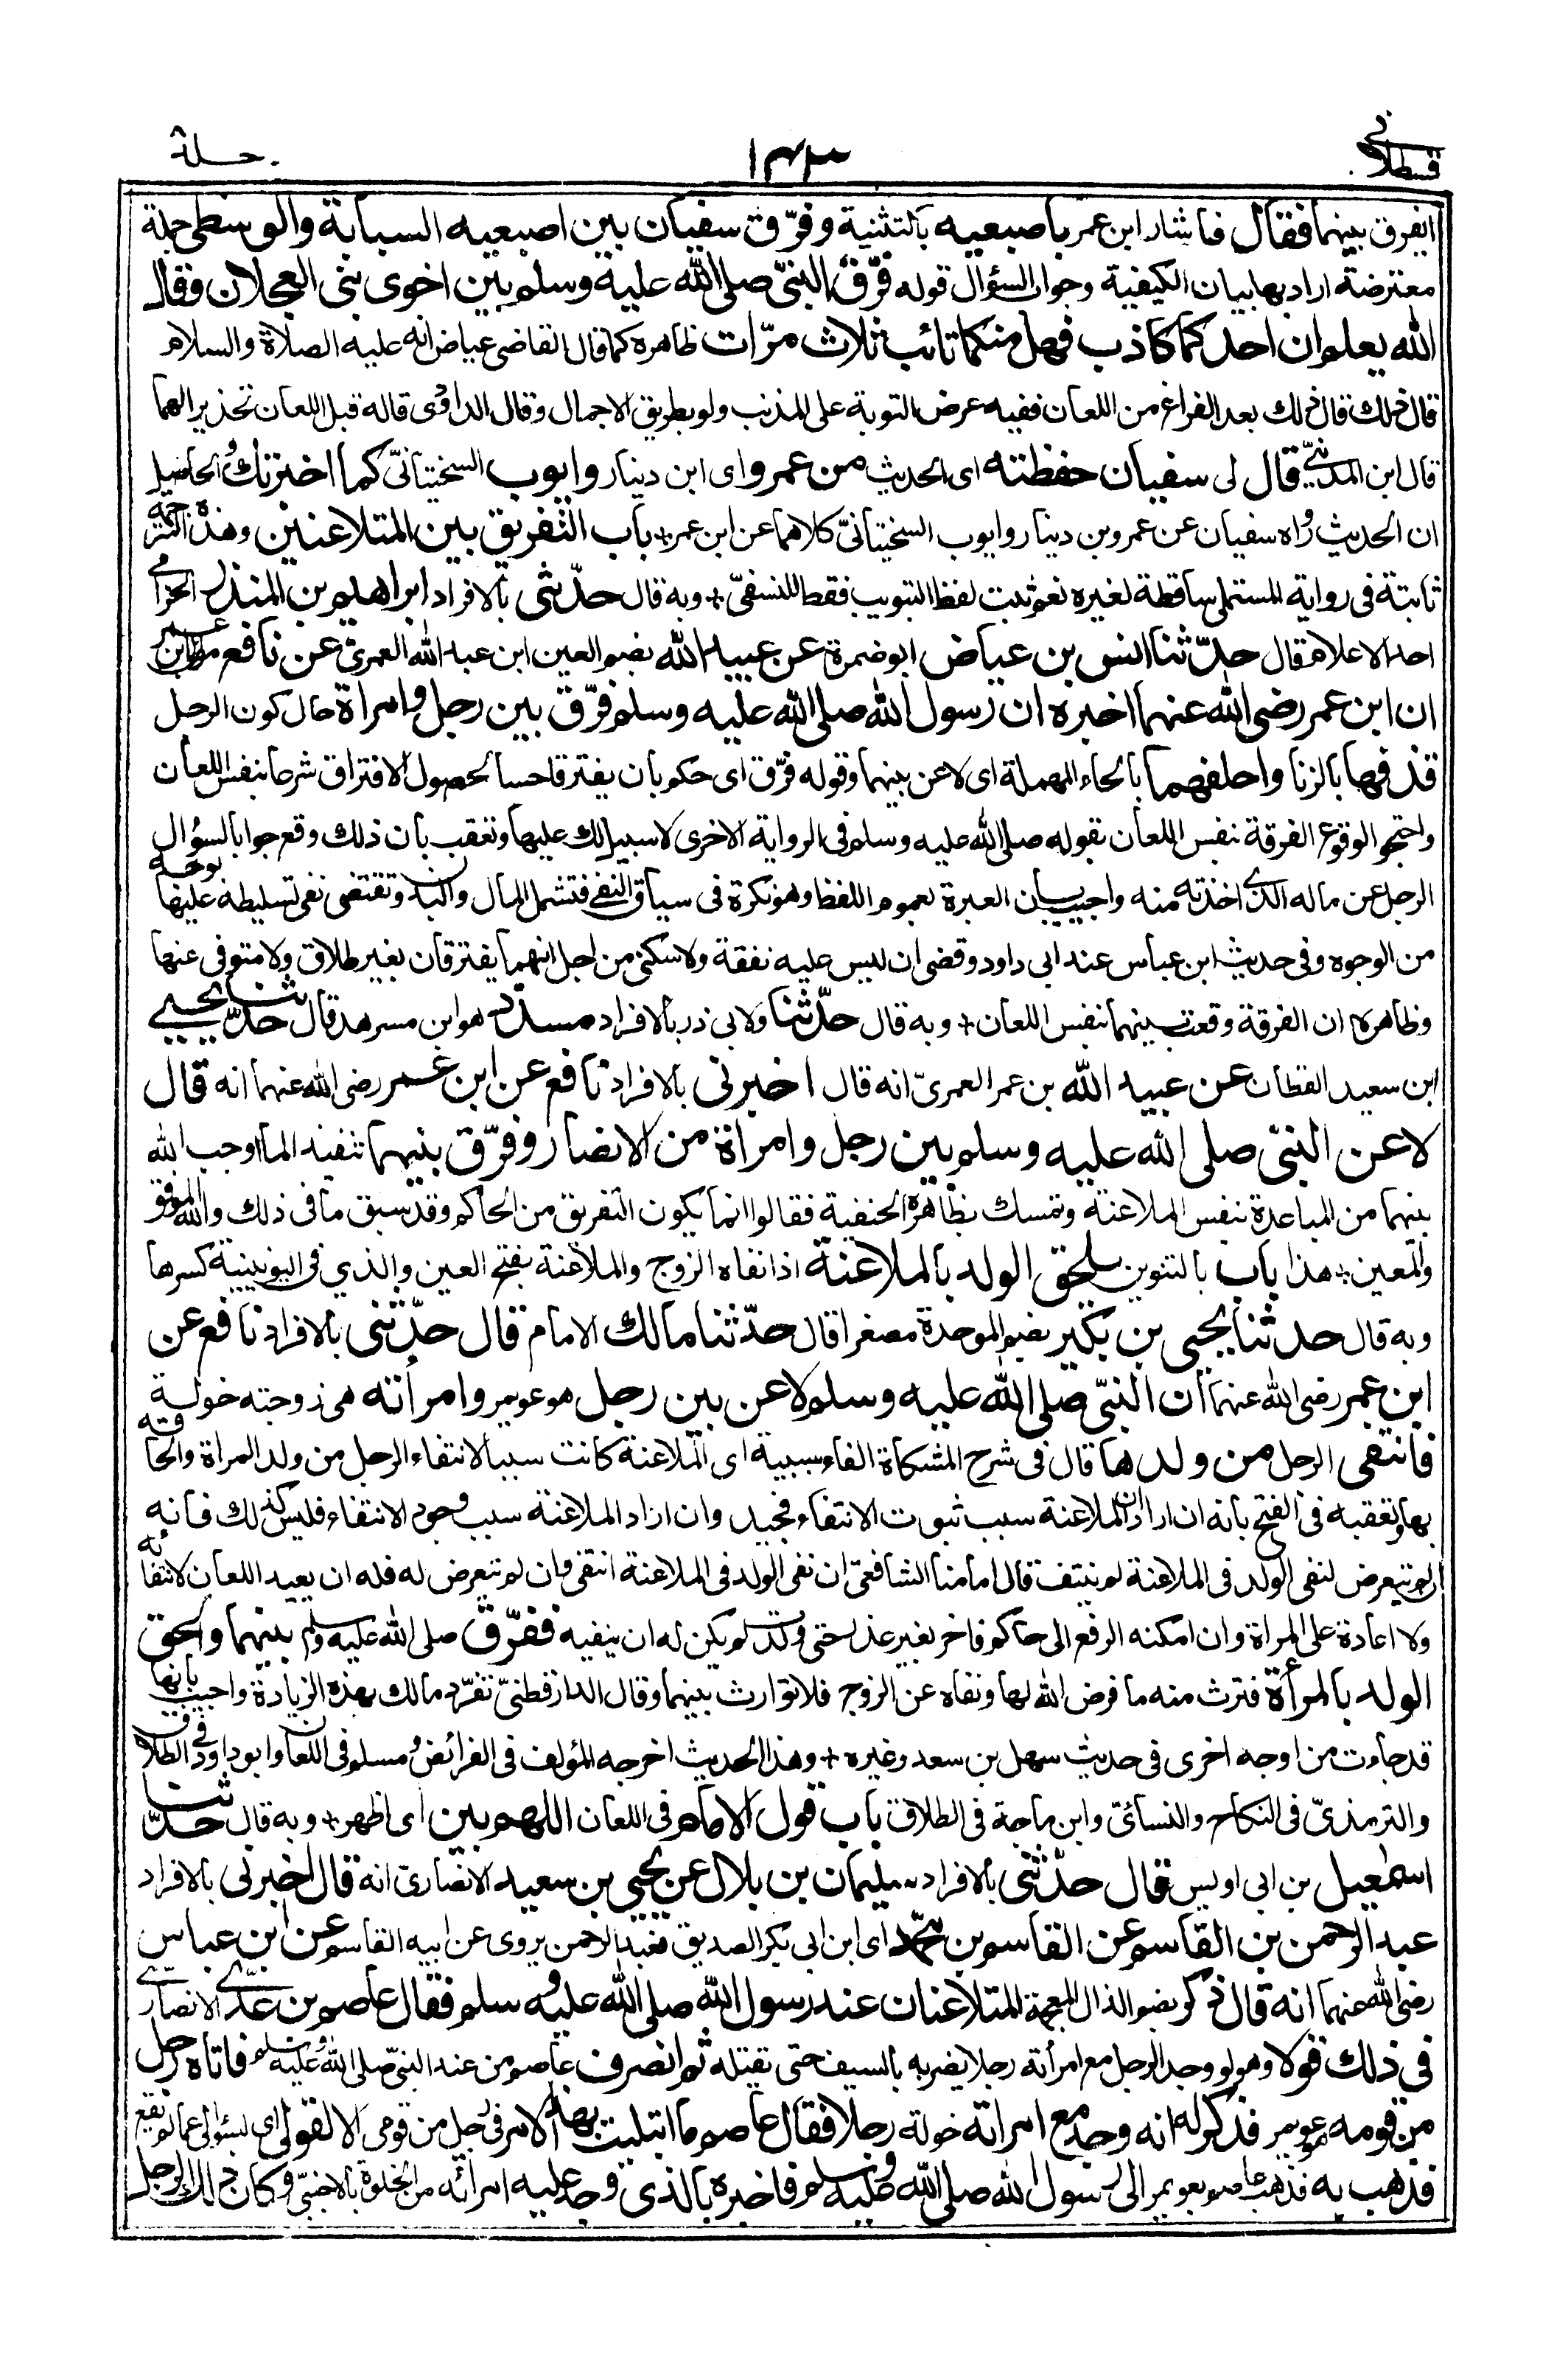 قسطلانی
١٤٣
جلد ٨
ايفرق بينهما فقال فاشار ابن عمر باصبعيه بالتثنية وفرّق سفيان بين اصبعيه السبابة والوسطى جملة
معترضة اراد بها بيان الكيفية وجواب السؤال قوله فرّق النبيّ صلى الله عليه وسلم بين اخوى بنى العجلان فقال
الله يعلم ان احدكما كاذب فهل منكما تائب ثلاث مرّات ظاهره كما قال القاضى عياض انه عليه الصلاة والسلام
قال ذلك قال ذلك بعد الفراغ من اللعان ففيه عرض التوبة على المذنب ولو بطريق الاجمال وقال الداودى قاله قبل اللعان تحذيرا لهما
قال ابن المدينيّ قال لى سفيان حفظته اى الحديث من عمرو اى ابن دينار وايوب السختيانىّ كما اخبرتك والحاصل
ان الحديث رواه سفيان عن عمرو بن دينار وايوب السختيانىّ كلاهما عن ابن عمر + باب التفريق بين المتلاعنين وهذه الترجمة
ثابتة فى رواية المستملى ساقطة لغيره نعم ثبت لفظ التبويب فقط للنسفىّ + وبه قال حدّثنى بالافراد ابراهيم بن المنذر الحزامى
احد الاعلام قال حدّثنا انس بن عياض ابو ضمرة عن عبيد الله بضم العين ابن عبد الله العمرىّ عن نافع مولى ابن عمر
ان ابن عمر رضى الله عنهما اخبره ان رسول الله صلى الله عليه وسلم فرّق بين رجل وامراة حال كون الرجل
قذفها بالزنا واحلفهما بالحاء المهملة اى لاعن بينهما وقوله فرّق اى حكم بان يفترقا حسا لحصول الافتراق شرعا بنفس اللعان
واحتجوا لوقوع الفرقة بنفس اللعان بقوله صلى الله عليه وسلم فى الرواية الاخرى لا سبيل لك عليها وتعقب بان ذلك وقع جوابا لسؤال
الرجل عن ماله الذى اخذته منه واجيب بان العبرة بعموم اللفظ وهو نكرة فى سياق النفى فتشمل المال والبدن وتقتضى نفى تسليطه عليها بوجه
من الوجوه وفى حديث ابن عباس عند ابى داود وقضى ان ليس عليه نفقة ولا سكنى من اجل انهما يفترقان بغير طلاق ولا متوفى عنها
وظاهره ان الفرقة وقعت بينهما بنفس اللعان + وبه قال حدّثنا ولابى ذر بالافراد مسدّد هو ابن مسرهد قال حدّثنا يحيى
ابن سعيد القطان عن عبيد الله بن عمر العمرىّ انه قال اخبرنى بالافراد نافع عن ابن عمر رضى الله عنهما انه قال
لاعن النبىّ صلى الله عليه وسلم بين رجل وامراة من الانصار وفرّق بينهما تنفيذا لما اوجب الله
بينهما من المباعدة بنفس الملاعنة وتمسك بظاهره الحنفية فقالوا انما يكون التفريق من الحاكم وقد سبق ما فى ذلك والله الموفق
والمعين + هذا باب بالتنوين يلحق الولد بالملاعنة اذا نفاه الزوج والملاعنة بفتح العين والذي فى اليونينية كسرها
وبه قال حدثنا يحيى بن بكير بضم الموحدة مصغرا قال حدّثنا مالك الامام قال حدّثنى بالافراد نافع عن
ابن عمر رضى الله عنهما ان النبىّ صلى الله عليه وسلم لاعن بين رجل هو عويمر وامرأته هى زوجته خولة
فانتفى الرجل من ولدها قال فى شرح المشكاة الفاء سببية اى الملاعنة كانت سببا لانتفاء الرجل من ولد المراة والحاقه
بها وتعقبه فى الفتح بانه ان اراد ان الملاعنة سبب ثبوت الانتفاء فجيد وان اراد الملاعنة سبب وجود الانتفاء فليس كذلك فانه
ان لم يتعرض لنفى الولد فى الملاعنة لم ينتف قال امامنا الشافعىّ ان نفى الولد فى الملاعنة انتفى وان لم يتعرض له فله ان يعيد اللعان لانتفائه
ولا اعادة على المراة وان امكنه الرفع الى حاكم فاخر بغير عذر حتى ولدت لم يكن له ان ينفيه ففرّق صلى الله عليه وسلم بينهما والحق
الولد بالمرأة فترث منه ما فرض الله لها ونفاه عن الزوج فلا توارث بينهما وقال الدارقطنىّ تفرّد مالك بهذه الزيادة واجيب بانها
قد جاءت من اوجه اخرى فى حديث سهل بن سعد وغيره + وهذا الحديث اخرجه المؤلف فى الفرائض ومسلم فى اللعان وابو داود فى الطلاق
والترمذىّ فى النكاح والنسائىّ وابن ماجة فى الطلاق باب قول الامام فى اللعان اللهم بين اى اظهر + وبه قال حدّثنا
اسمعيل بن ابى اويس قال حدّثنى بالافراد سليمان بن بلال عن يحيى بن سعيد الانصارىّ انه قال اخبرنى بالافراد
عبد الرحمن بن القاسم عن القاسم بن محمد اى ابن ابى بكر الصديق فعبد الرحمن يروى عن ابيه القاسم عن ابن عباس
رضى الله عنهما انه قال ذكر بضم الذال المعجمة المتلاعنان عند رسول الله صلى الله عليه وسلم فقال عاصم بن عدىّ الانصارىّ
فى ذلك قولا وهو لو وجد الرجل مع امرأته رجلا يضربه بالسيف حتى يقتله ثم انصرف عاصم من عند النبىّ صلى الله عليه وسلم فاتاه رجل
من قومه هو عويمر فذكر له انه وجد مع امراته خولة رجلا فقال عاصم ما ابتليت بهذا الامر فى رجل من قومى الا لقولى اى لسؤالى عما لم يقع
فذهب به فذهب عاصم بعويمر الى رسول الله صلى الله عليه وسلم فاخبره بالذى وجد عليه امرأته من الخلوة بالاجنبىّ وكان ذلك الرجل